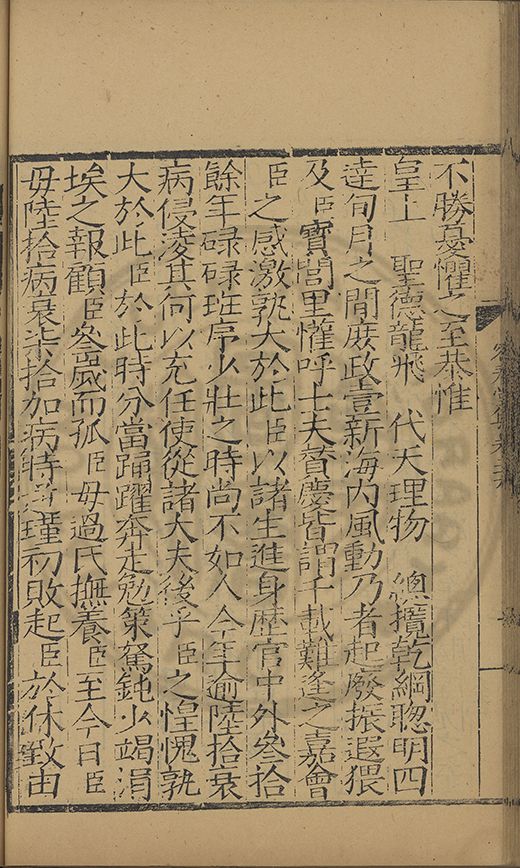 不勝憂懼之至恭惟
皇上　聖德龍飛　代天理物　總攬乾綱聰明四
達旬月之間庶政壹新海内風動乃者起廢振遐猥
及臣寶閭里懽呼士夫賫慶皆謂千載難逢之嘉會
臣之感激孰大於此臣以諸生進身歷官中外叄拾
餘年碌碌班序少壯之時尚不如人今年逾陸拾衰
病侵凌其何以充任使從諸大夫後乎臣之惶愧孰
大於此臣於此時分當踴躍奔走勉策駑鈍少竭涓
埃之報顧臣叄歲而孤臣母過氏撫養臣至今日臣
母陸拾病衰柒拾加病時逆瑾初敗起臣於休致由